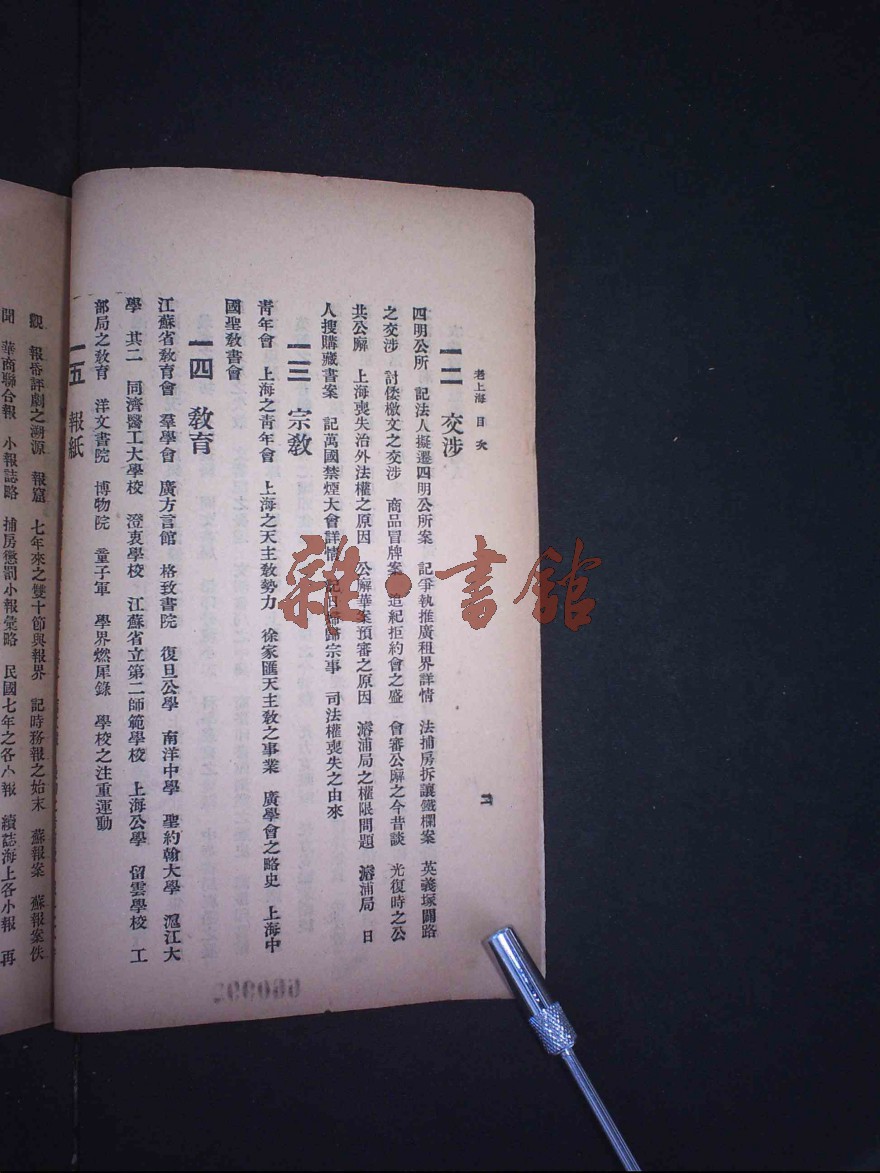 老上海　目次
二
一二　交涉
四明公所　記法人擬遷四明公所案　記爭執推廣租界詳情　法捕房拆讓鐵欄案　英義塚闢路
之交涉　討倭檄文之交涉　商品冒牌案　追紀拒約會之盛　會審公廨之今昔談　光復時之公
共公廨　上海喪失治外法權之原因　公廨華案預審之原因　濬浦局之權限問題　濬浦局　日
人搜購藏書案　記萬國禁煙大會詳情　記日　歸宗事　司法權喪失之由來
一三　宗教
青年會　上海之青年會　上海之天主教勢力　徐家匯天主教之事業　廣學會之略史　上海中
國聖教書會
一四　教育
江蘇省教育會　羣學會　廣方言館　格致書院　復旦公學　南洋中學　聖約翰大學　滬江大
學　其二　同濟醫工大學校　澄衷學校　江蘇省立第二師範學校　上海公學　留雲學校　工
部局之教育　洋文書院　博物院　童子軍　學界燃犀錄　學校之注重運動
一五　報紙
觀　報岙評劇之溯源　報窟　七年來之雙十節與報界　記時務報之始末　蘇報案　蘇報案佚
聞　華商聯合報　小報誌略　捕房懲罰小報彙略　民國七年之各小報　續誌海上各小報　再
雜·書館